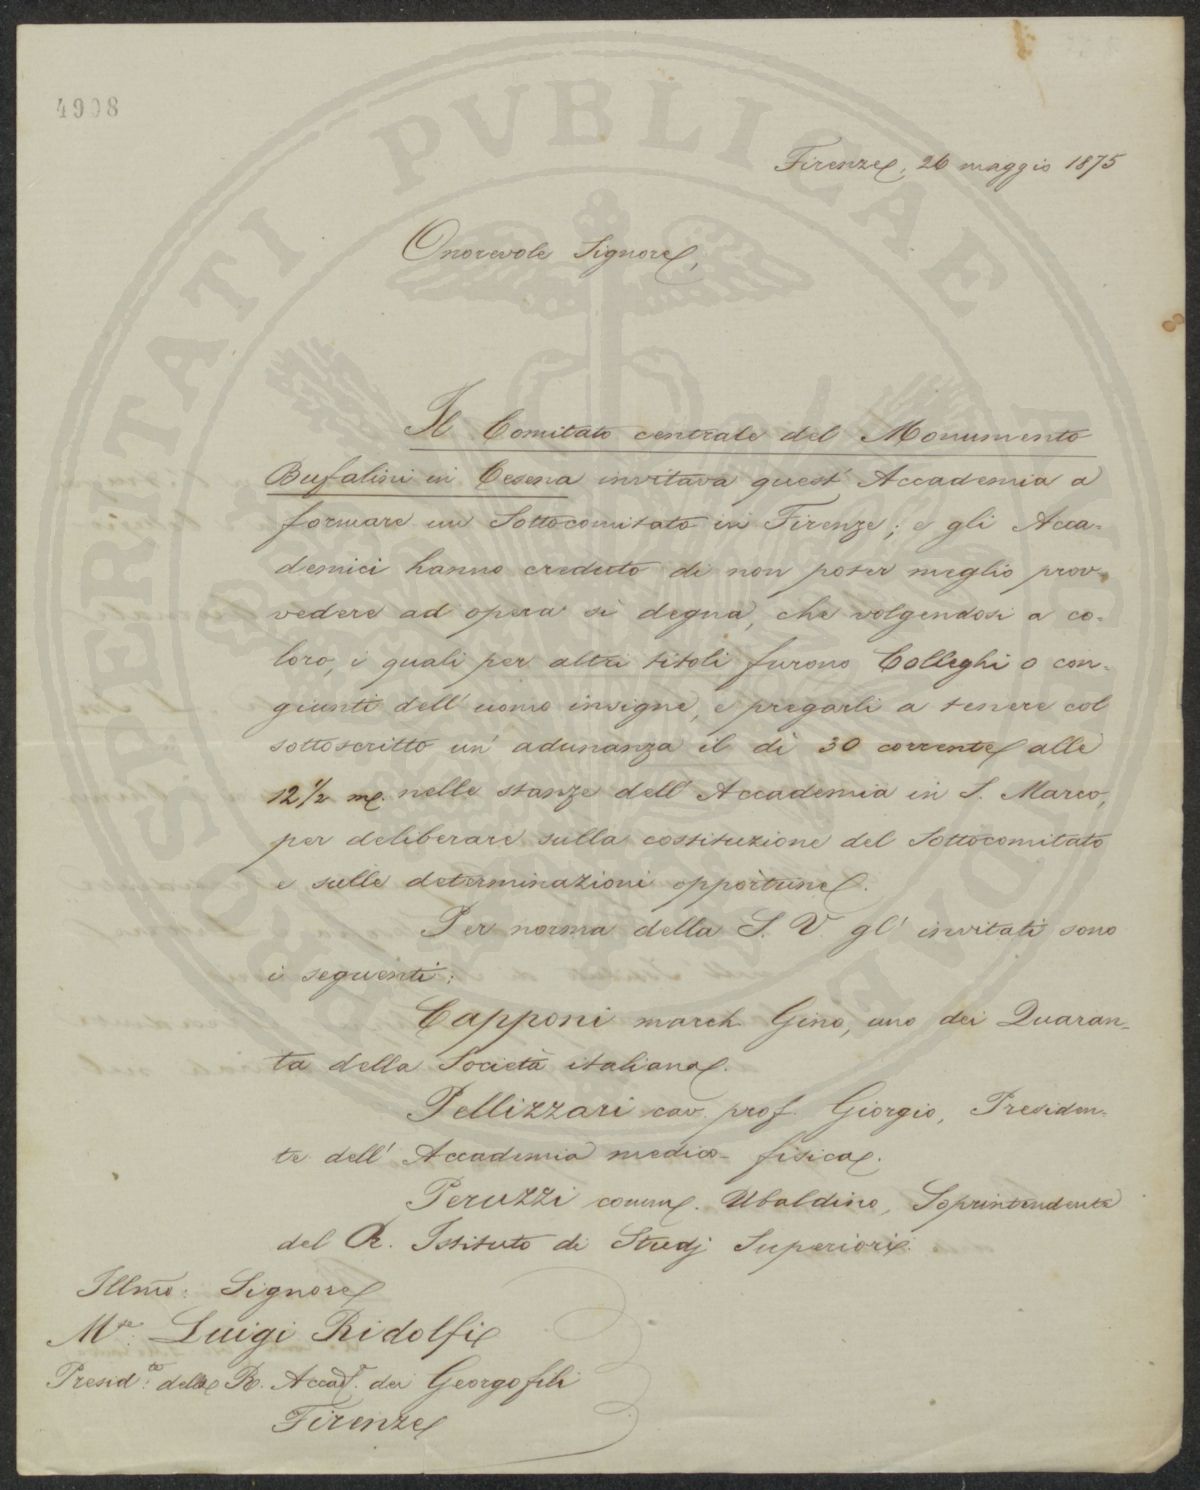 4908
Firenze, 26 maggio 1875
Onorevole Signore,
Il Comitato centrale del Monumento
Bufalini in Cesena invitava quest' Accademia a
formare un Sottocomitato in Firenze; e gli Acca-
demici hanno creduto di non poter meglio prov-
vedere ad opera sì degna, che volgendosi a co-
loro, i quali per altri titoli furono Colleghi o con-
giunti dell' uomo insigne, e pregarli a tenere col
sottoscritto un' adunanza il dì 30 corrente alle
12 1/2 m. nelle stanze dell' Accademia in S. Marco,
per deliberare sulla costituzione del Sottocomitato
e sulle determinazioni opportune.
Per norma della S. V. gl' invitati sono
i seguenti:
Capponi march. Gino, uno dei Quaran-
ta della Società italiana.
Pellizzari cav. prof. Giorgio, Presiden-
te dell' Accademia medico-fisica.
Peruzzi comm. Ubaldino, Soprintendente
del R. Istituto di Studj Superiori.
Illmo: Signore
Mse: Luigi Ridolfi
Presidte: della R. Accad. dei Georgofili
Firenze
PROSPERITATI PVBLICAE AVGENDAE